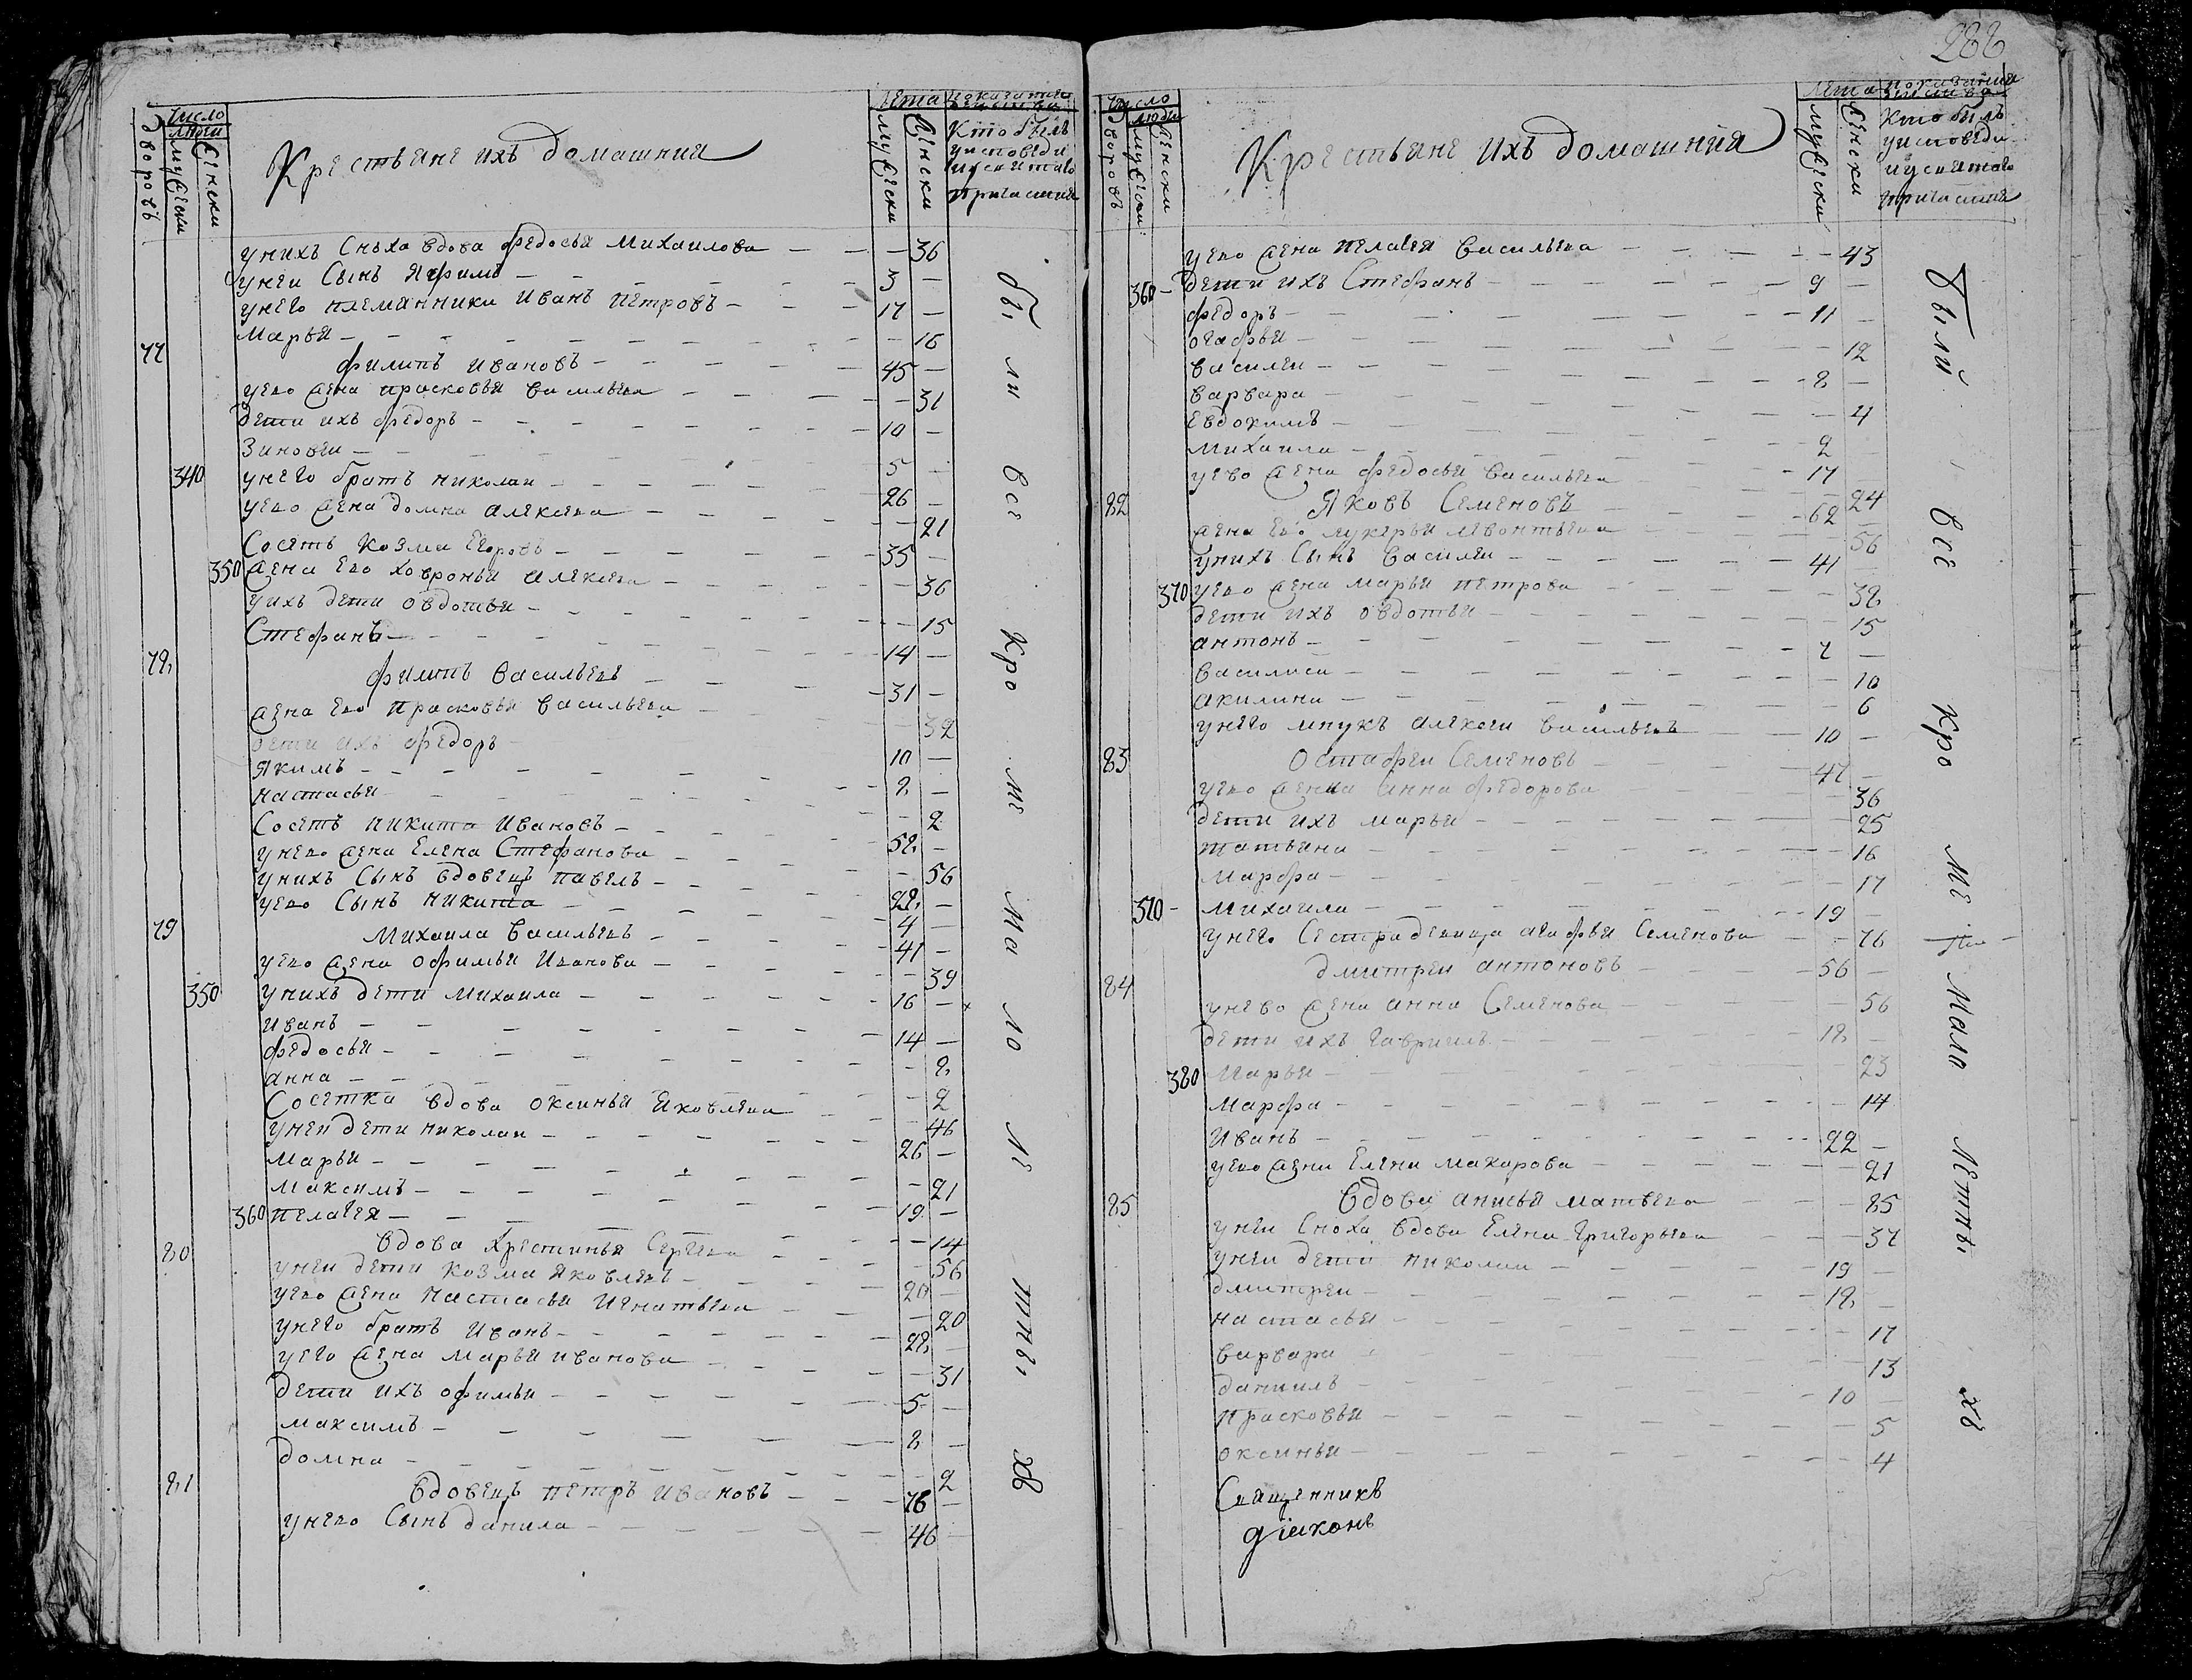 Число
людеи
дворовъ
мужески
женски
Крестьяне ихъ домашнии
лета
мужески
женски
показание
Кто былъ
уисповеди
иусвятаго
причастия
унихъ Сноха вдова федосья Михаилова — 36
унеи Сынъ Яфимъ — 3 —
унего племянники Иванъ Петровъ — 17 —
Марья — 16
77 филипъ Ивановъ — 45 —
уево жена прасковья васильева — 31
дети ихъ федоръ — 10 —
Зиновеи — 5 —
340 унего братъ николаи — 26 —
уево жена домна алексева — 21
Соседъ Козма Егоровъ — 35 —
350 жена Ево ховронья алексева — 36
уихъ дети овдотья — 15
Стефанъ — 14 —
78 филипъ васильевъ — 31 —
жена Ево прасковья васильева — 32
дети ихъ федоръ — 10 —
Якимъ — 8 —
настасья — 2
Соседъ никита Ивановъ — 58 —
унево жена Елена Стефанова — 56
унихъ Сынъ вдовецъ павелъ — 28 —
уево Сынъ никита — 4 —
79 Михаила васильевъ — 41 —
уево жена офимья Иванова — 39
350 унихъ дети Михаила — 16 —
Иванъ — 14 —
федосья — 8
анна — 2
Соседка вдова оксинья Яковлева — 46
унеи дети николаи — 26 —
Марья — 21
Максимъ — 19 —
360 пелагея — 14
80 вдова Хрестинья Сергеева — 56
унеи дети козма Яковлевъ — 20 —
уево жена настасья Игнатьева — 20
унего братъ Иванъ — 28 —
уего жена марья иванова — 31
дети ихъ офимья — 5 —
максимъ — 8 —
домна — 2
81 вдовецъ петръ ивановъ — 76 —
унево Сынъ данила — 46 —
были все кроме малолетныхъ
288
Число
люди
дворовъ
мужески
женски
Крестьяне ихъ домашния
лета
мужески
женски
показания
Кто былъ
уисповеди
иусвятаго
причастия
уево жена пелагея васильева — 43
360 дети ихъ Стефанъ — 9 —
федоръ — 11 —
огафья — 12
василеи — 8 —
варвара — 4
Евдокимъ — 2
михаила — 17
уево жена федосья васильева — 24
82 Яковъ Семеновъ — 62 —
жена Ево лукерья левонтьева — 56
унихъ Сынъ василеи — 41
370 уево жена марья петрова — 38
дети ихъ овдотья — 15
антонъ — 7 —
василиса — 10
акилина — 6
унего внукъ алексеи васильевъ — 10 —
83 Остафеи Семеновъ — 47 —
уево жена анна федорова — 36
дети ихъ марья — 25
татьяна — 16
марфа — 17
370 михаила — 19 —
унего Сестра девица агафья Семенова — 76
84 дмитреи антоновъ — 56 —
унево жена анна Семенова — 56
дети ихъ гаврилъ — 18 —
380 Марья — 23
марфа — 14
Иванъ — 22 —
уево жена Елена макарова — 21
85 вдова анисья матвева — 85
унеи Сноха вдова Елена григорьева — 37
унеи дети николаи — 19 —
дмитреи — 18 —
настасья — 17
варвара — 13
даниилъ — 10 —
прасковья — 5
оксинья — 4
были все кроме малолетныхъ
Священникъ
діаконъ